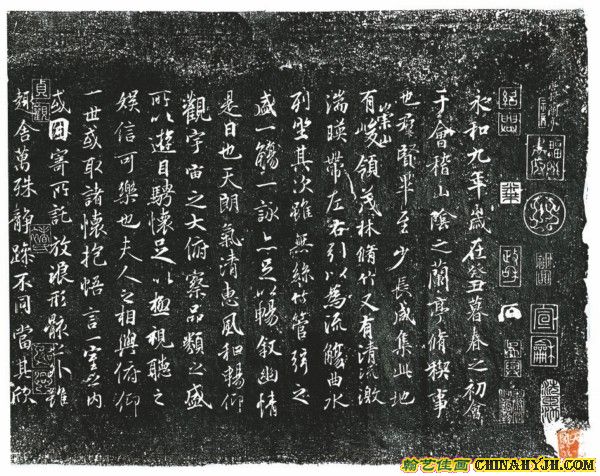 永和九年歲在癸丑暮春之初會
于會稽山陰之蘭亭脩稧事
也羣賢畢至少長咸集此地
有崇山峻領茂林脩竹又有清流激
湍暎帶左右引以為流觴曲水
列坐其次雖無絲竹管弦之
盛一觴一詠亦足以暢叙幽情
是日也天朗氣清惠風和暢仰
觀宇宙之大俯察品類之盛
所以遊目騁懷足以極視聽之
娛信可樂也夫人之相與俯仰
一世或取諸懷抱悟言一室之內
或因寄所託放浪形骸之外雖
趣舍萬殊靜躁不同當其欣
貞觀
翰艺佳画 CHINAHYJH.COM